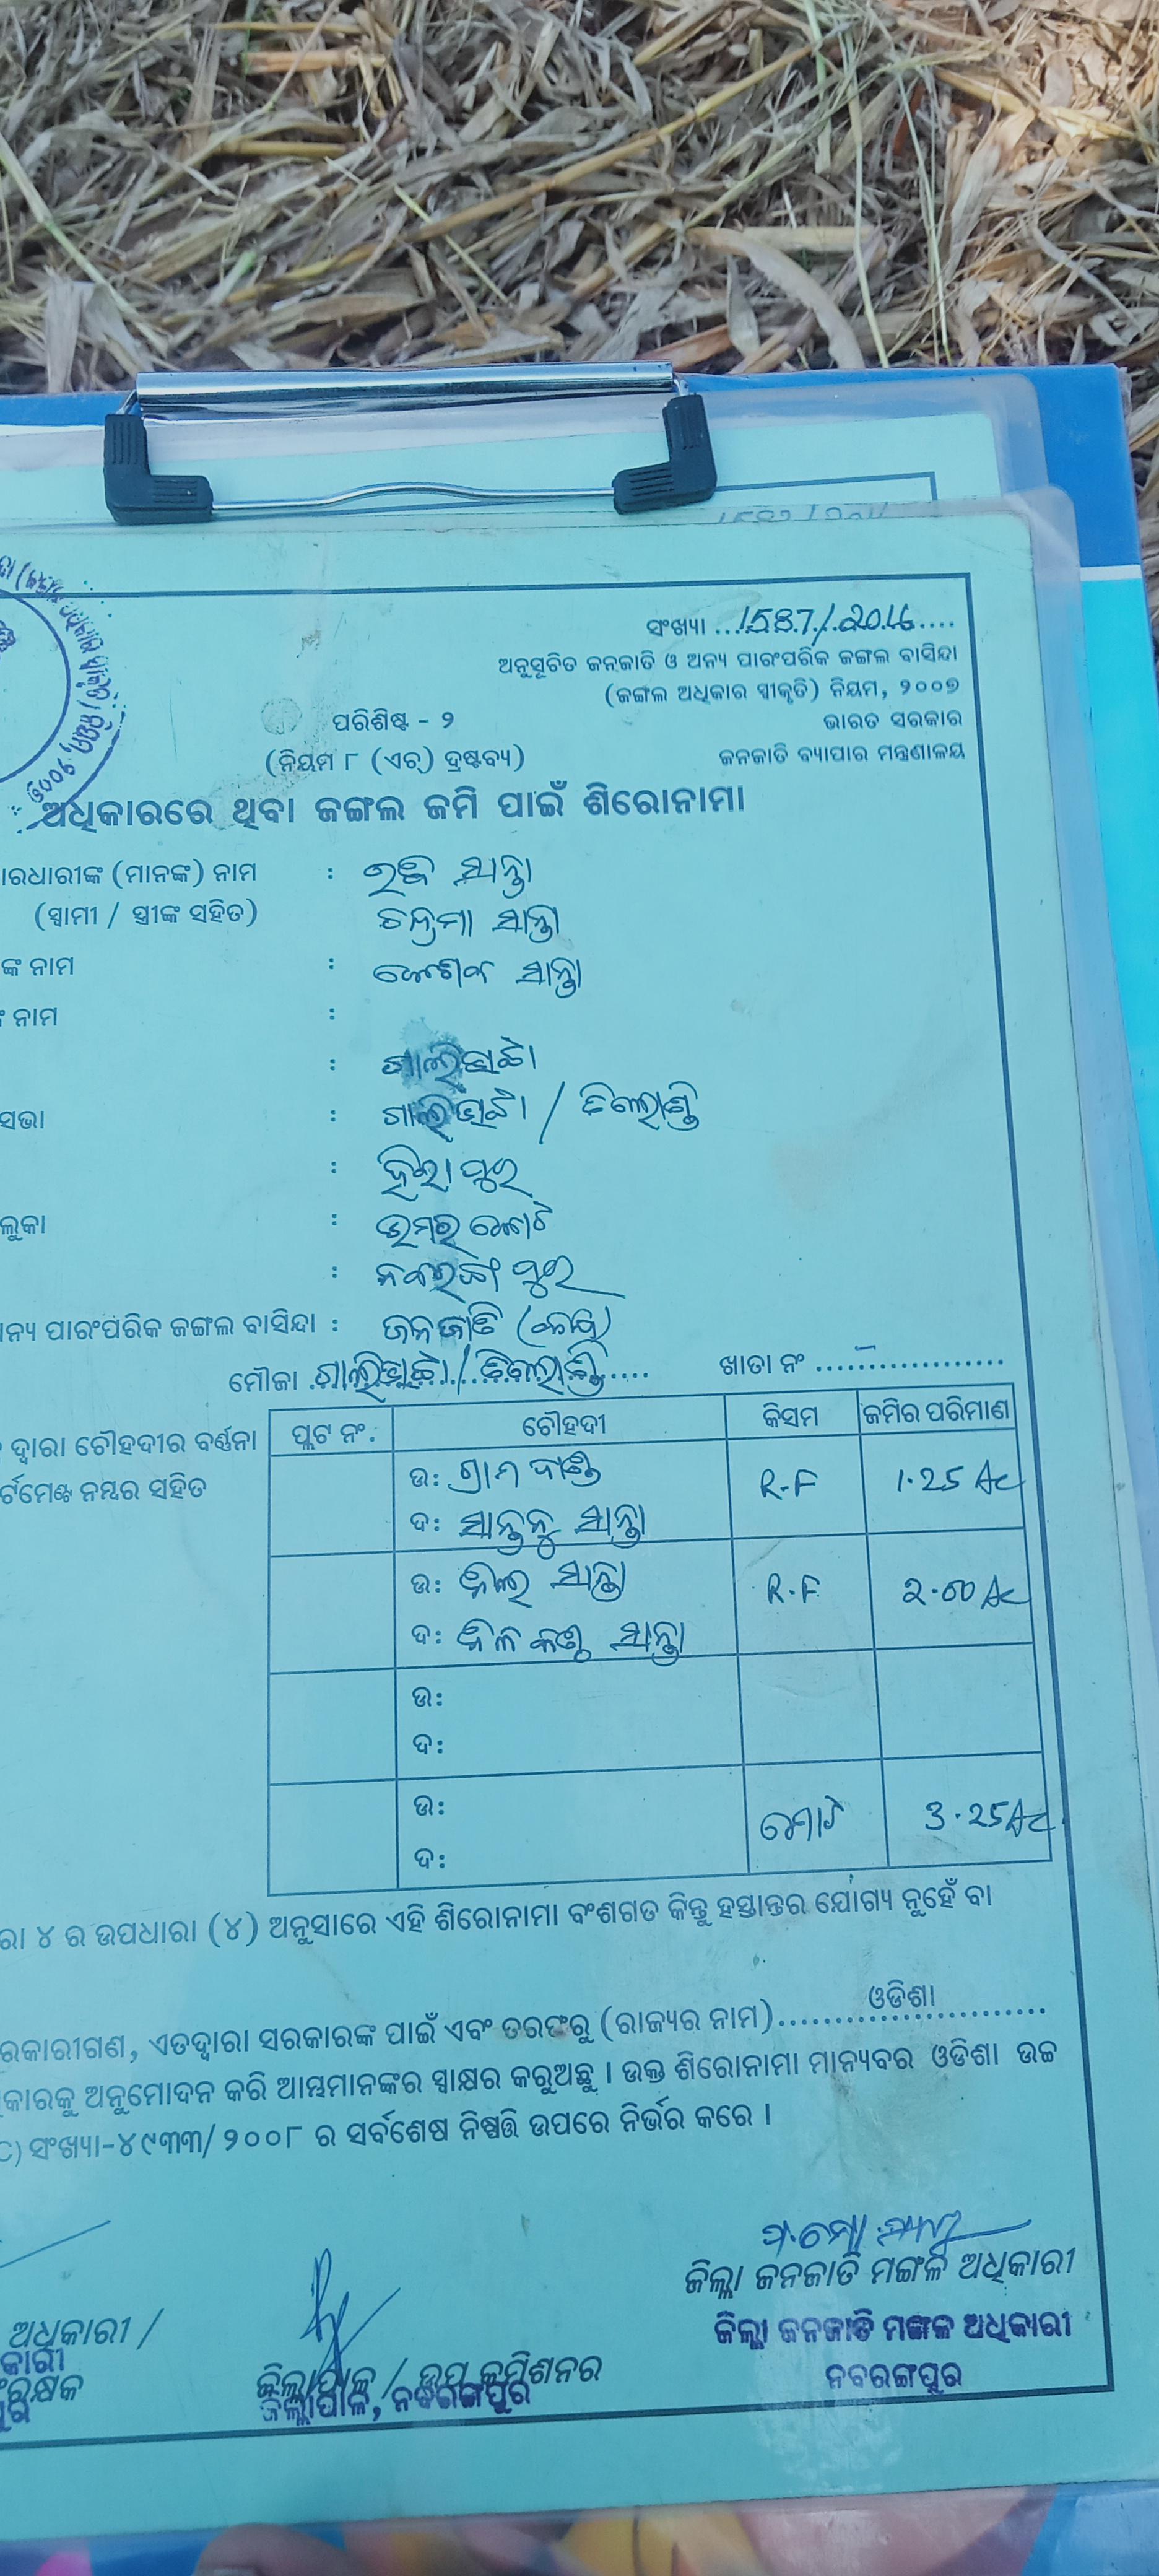 ସଂଖ୍ୟା ...1587/2016....
ଅନୁସୂଚିତ ଜନଜାତି ଓ ଅନ୍ୟ ପାରଂପରିକ ଜଙ୍ଗଲ ବାସିନ୍ଦା
(ଜଙ୍ଗଲ ଅଧିକାର ସ୍ୱୀକୃତି) ନିୟମ, ୨୦୦୭
ଭାରତ ସରକାର
ଜନଜାତି ବ୍ୟାପାର ମନ୍ତ୍ରଣାଳୟ
ପରିଶିଷ୍ଟ - ୨
(ନିୟମ ୮ (ଏଚ୍) ଦ୍ରଷ୍ଟବ୍ୟ)
ଅଧିକାରରେ ଥିବା ଜଙ୍ଗଲ ଜମି ପାଇଁ ଶିରୋନାମା
ାରଧାରୀଙ୍କ (ମାନଙ୍କ) ନାମ : ସାନ୍ତା
(ସ୍ୱାମୀ / ସ୍ତ୍ରୀଙ୍କ ସହିତ) ଚନ୍ଦ୍ରମା ସାନ୍ତା
ଙ୍କ ନାମ : କେଶବ ସାନ୍ତା
ନାମ :
: ଗାଲିଭାଟା
ସଭା : ଗାଲିଭାଟା /
: ହିରାପୁର
ଲୁକା : ଉମରକୋଟ
: ନବରଙ୍ଗପୁର
ାନ୍ୟ ପାରଂପରିକ ଜଙ୍ଗଲ ବାସିନ୍ଦା : ଜନଜାତି
ମୌଜା ଗାଲିଭାଟା / ଖାତା ନଂ ...................
ଦ୍ୱାରା ଚୌହଦୀର ବର୍ଣ୍ଣନା
ର୍ଟମେଣ୍ଟ ନମ୍ବର ସହିତ
ପ୍ଲଟ ନଂ. ଚୌହଦୀ କିସମ ଜମିର ପରିମାଣ
ଉ: ଗ୍ରାମ ଦାଣ୍ଡ R.F 1.25 Ac
ଦ: ସାନ୍ତନୁ ସାନ୍ତା
ଉ: ନିଲ ସାନ୍ତା R.F 2.00 Ac
ଦ: ନିଳକଣ୍ଠ ସାନ୍ତା
ଉ:
ଦ:
ଉ: ମୋଟ 3.25 Ac
ଦ:
ରା ୪ ର ଉପଧାରା (୪) ଅନୁସାରେ ଏହି ଶିରୋନାମା ବଂଶଗତ କିନ୍ତୁ ହସ୍ତାନ୍ତର ଯୋଗ୍ୟ ନୁହେଁ ବା
ରକାରୀଗଣ, ଏତଦ୍ୱାରା ସରକାରଙ୍କ ପାଇଁ ଏବଂ ତରଫରୁ (ରାଜ୍ୟର ନାମ) ଓଡିଶା
କାରକୁ ଅନୁମୋଦନ କରି ଆମ୍ଭମାନଙ୍କର ସ୍ୱାକ୍ଷର କରୁଅଛୁ । ଉକ୍ତ ଶିରୋନାମା ମାନ୍ୟବର ଓଡିଶା ଉଚ୍ଚ
C) ସଂଖ୍ୟା-୪୯୩୩/୨୦୦୮ ର ସର୍ବଶେଷ ନିଷ୍ପତ୍ତି ଉପରେ ନିର୍ଭର କରେ ।
ଜିଲ୍ଲା ଜନଜାତି ମଙ୍ଗଳ ଅଧିକାରୀ
ଜିଲ୍ଲା ଜନଜାତି ମଙ୍ଗଳ ଅଧିକାରୀ
ନବରଙ୍ଗପୁର
ଅଧିକାରୀ /
କାରୀ
ରକ୍ଷକ
ପୁର
ଜିଲ୍ଲାପାଳ / ଉପ କମିଶନର
ଜିଲ୍ଲାପାଳ, ନବରଙ୍ଗପୁର